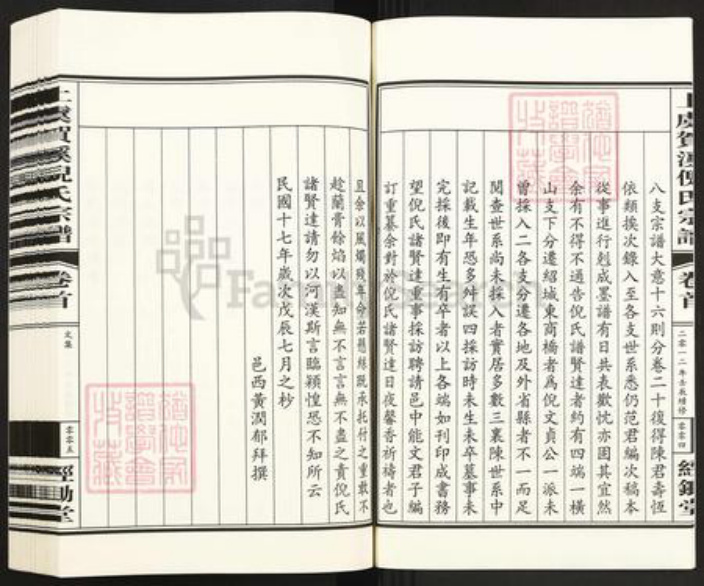 八支宗譜大意十六則分卷二十復得陳君壽恆
依類挨次錄入至各支世系悉仍范君編次稿本
從事進行剋成墨譜有日共表歡忱亦固其宜然
余有不得不通告倪氏譜賢達者約有四端一橫
山支下分遷紹城東商橋者爲倪文貞公一派未
曾採入二各支分遷各地及外省縣者不一而足
閱查世系尚未採入者實居多數三裏陳世系中
記載生年恐多舛誤四採訪時未生未卒墓事未
完採後即有生有卒者以上各端如刊印成書務
望倪氏諸賢達重事採訪聘請邑中能文君子編
訂重纂余對於倪氏諸賢達日夜馨香祈禱者也
上虞賀溪倪氏宗譜
卷首
二零一二年壬辰續修
零零四
經鋤堂
且余以風燭殘年命若懸絲既承托付之重敢不
趁蘭膏餘焰以盡知無不言言無不盡之責倪氏
諸賢達請勿以河漢斯言臨穎惶恐不知所云
民國十七年歲次戊辰七月之杪
邑西黃潤郁拜撰
上虞賀溪倪氏宗譜
卷首
文集
零零五
經鋤堂
FamilySearch